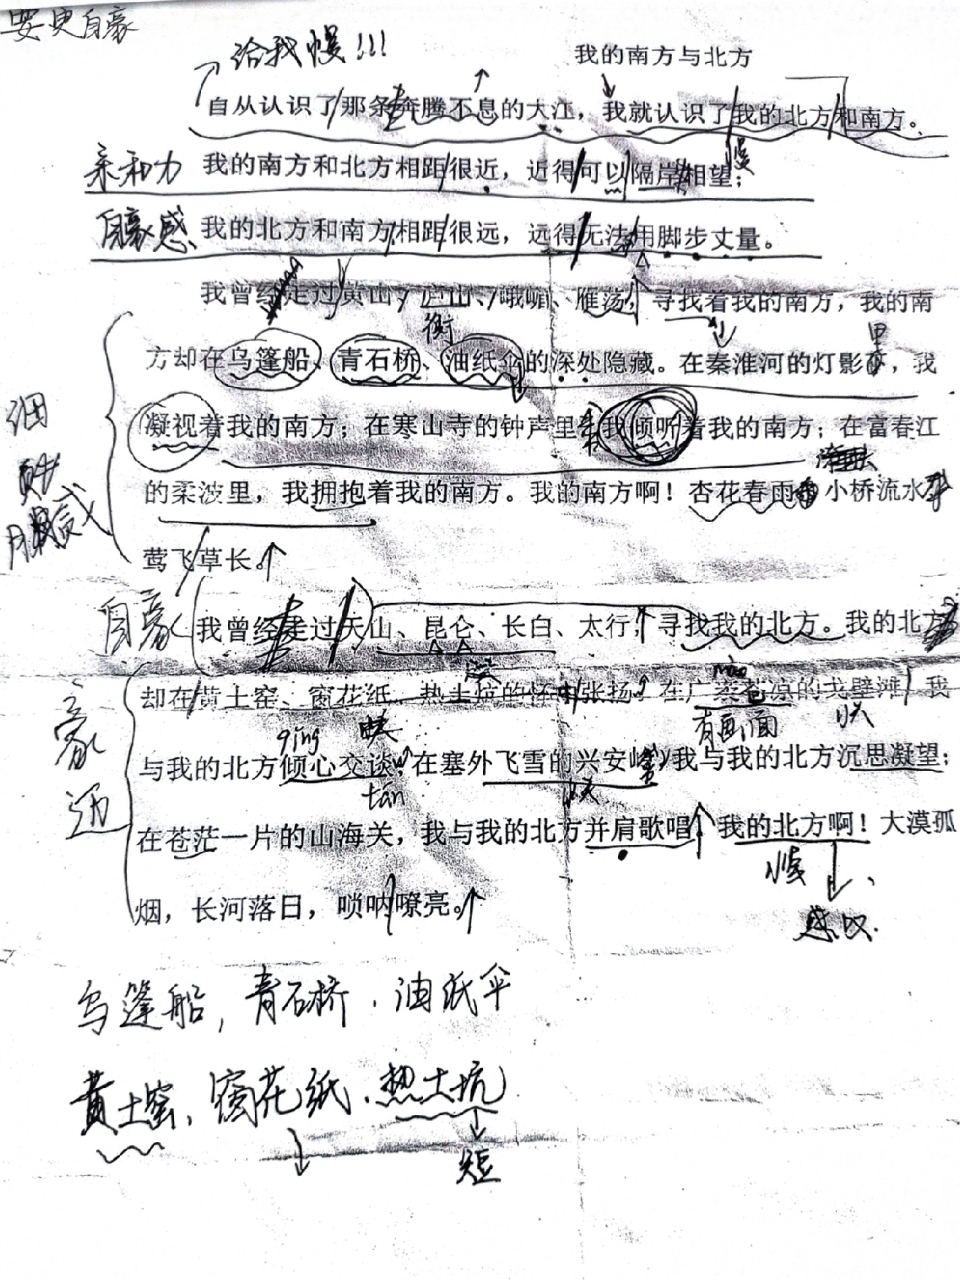 要更自豪
给我慢!!!
我的南方与北方
自从认识了那条奔腾不息的大江，我就认识了我的北方和南方。
亲和力
我的南方和北方相距很近，近得可以隔岸相望；
慢
自豪感
我的北方和南方相距很远，远得无法用脚步丈量。
我曾经走过黄山、庐山、峨嵋、雁荡，寻找着我的南方，我的南
衡
里
方却在乌篷船、青石桥、油纸伞的深处隐藏。在秦淮河的灯影里，我
细
凝视着我的南方；在寒山寺的钟声里，我倾听着我的南方；在富春江
的柔波里，我拥抱着我的南方。我的南方啊！杏花春雨，小桥流水，
莺飞草长。
自豪
我曾经走过天山、昆仑、长白、太行，寻找我的北方。我的北方
却在黄土窑、窗花纸、热土炕的怀中张扬。在广袤苍凉的戈壁滩，我
qing
有画面
快
豪迈
与我的北方倾心交谈；在塞外飞雪的兴安岭，我与我的北方沉思凝望；
tán
在苍茫一片的山海关，我与我的北方并肩歌唱。我的北方啊！大漠孤
慢
烟，长河落日，唢呐嘹亮。
感叹
乌篷船，青石桥．油纸伞
黄土窑、窗花纸、热土坑
短